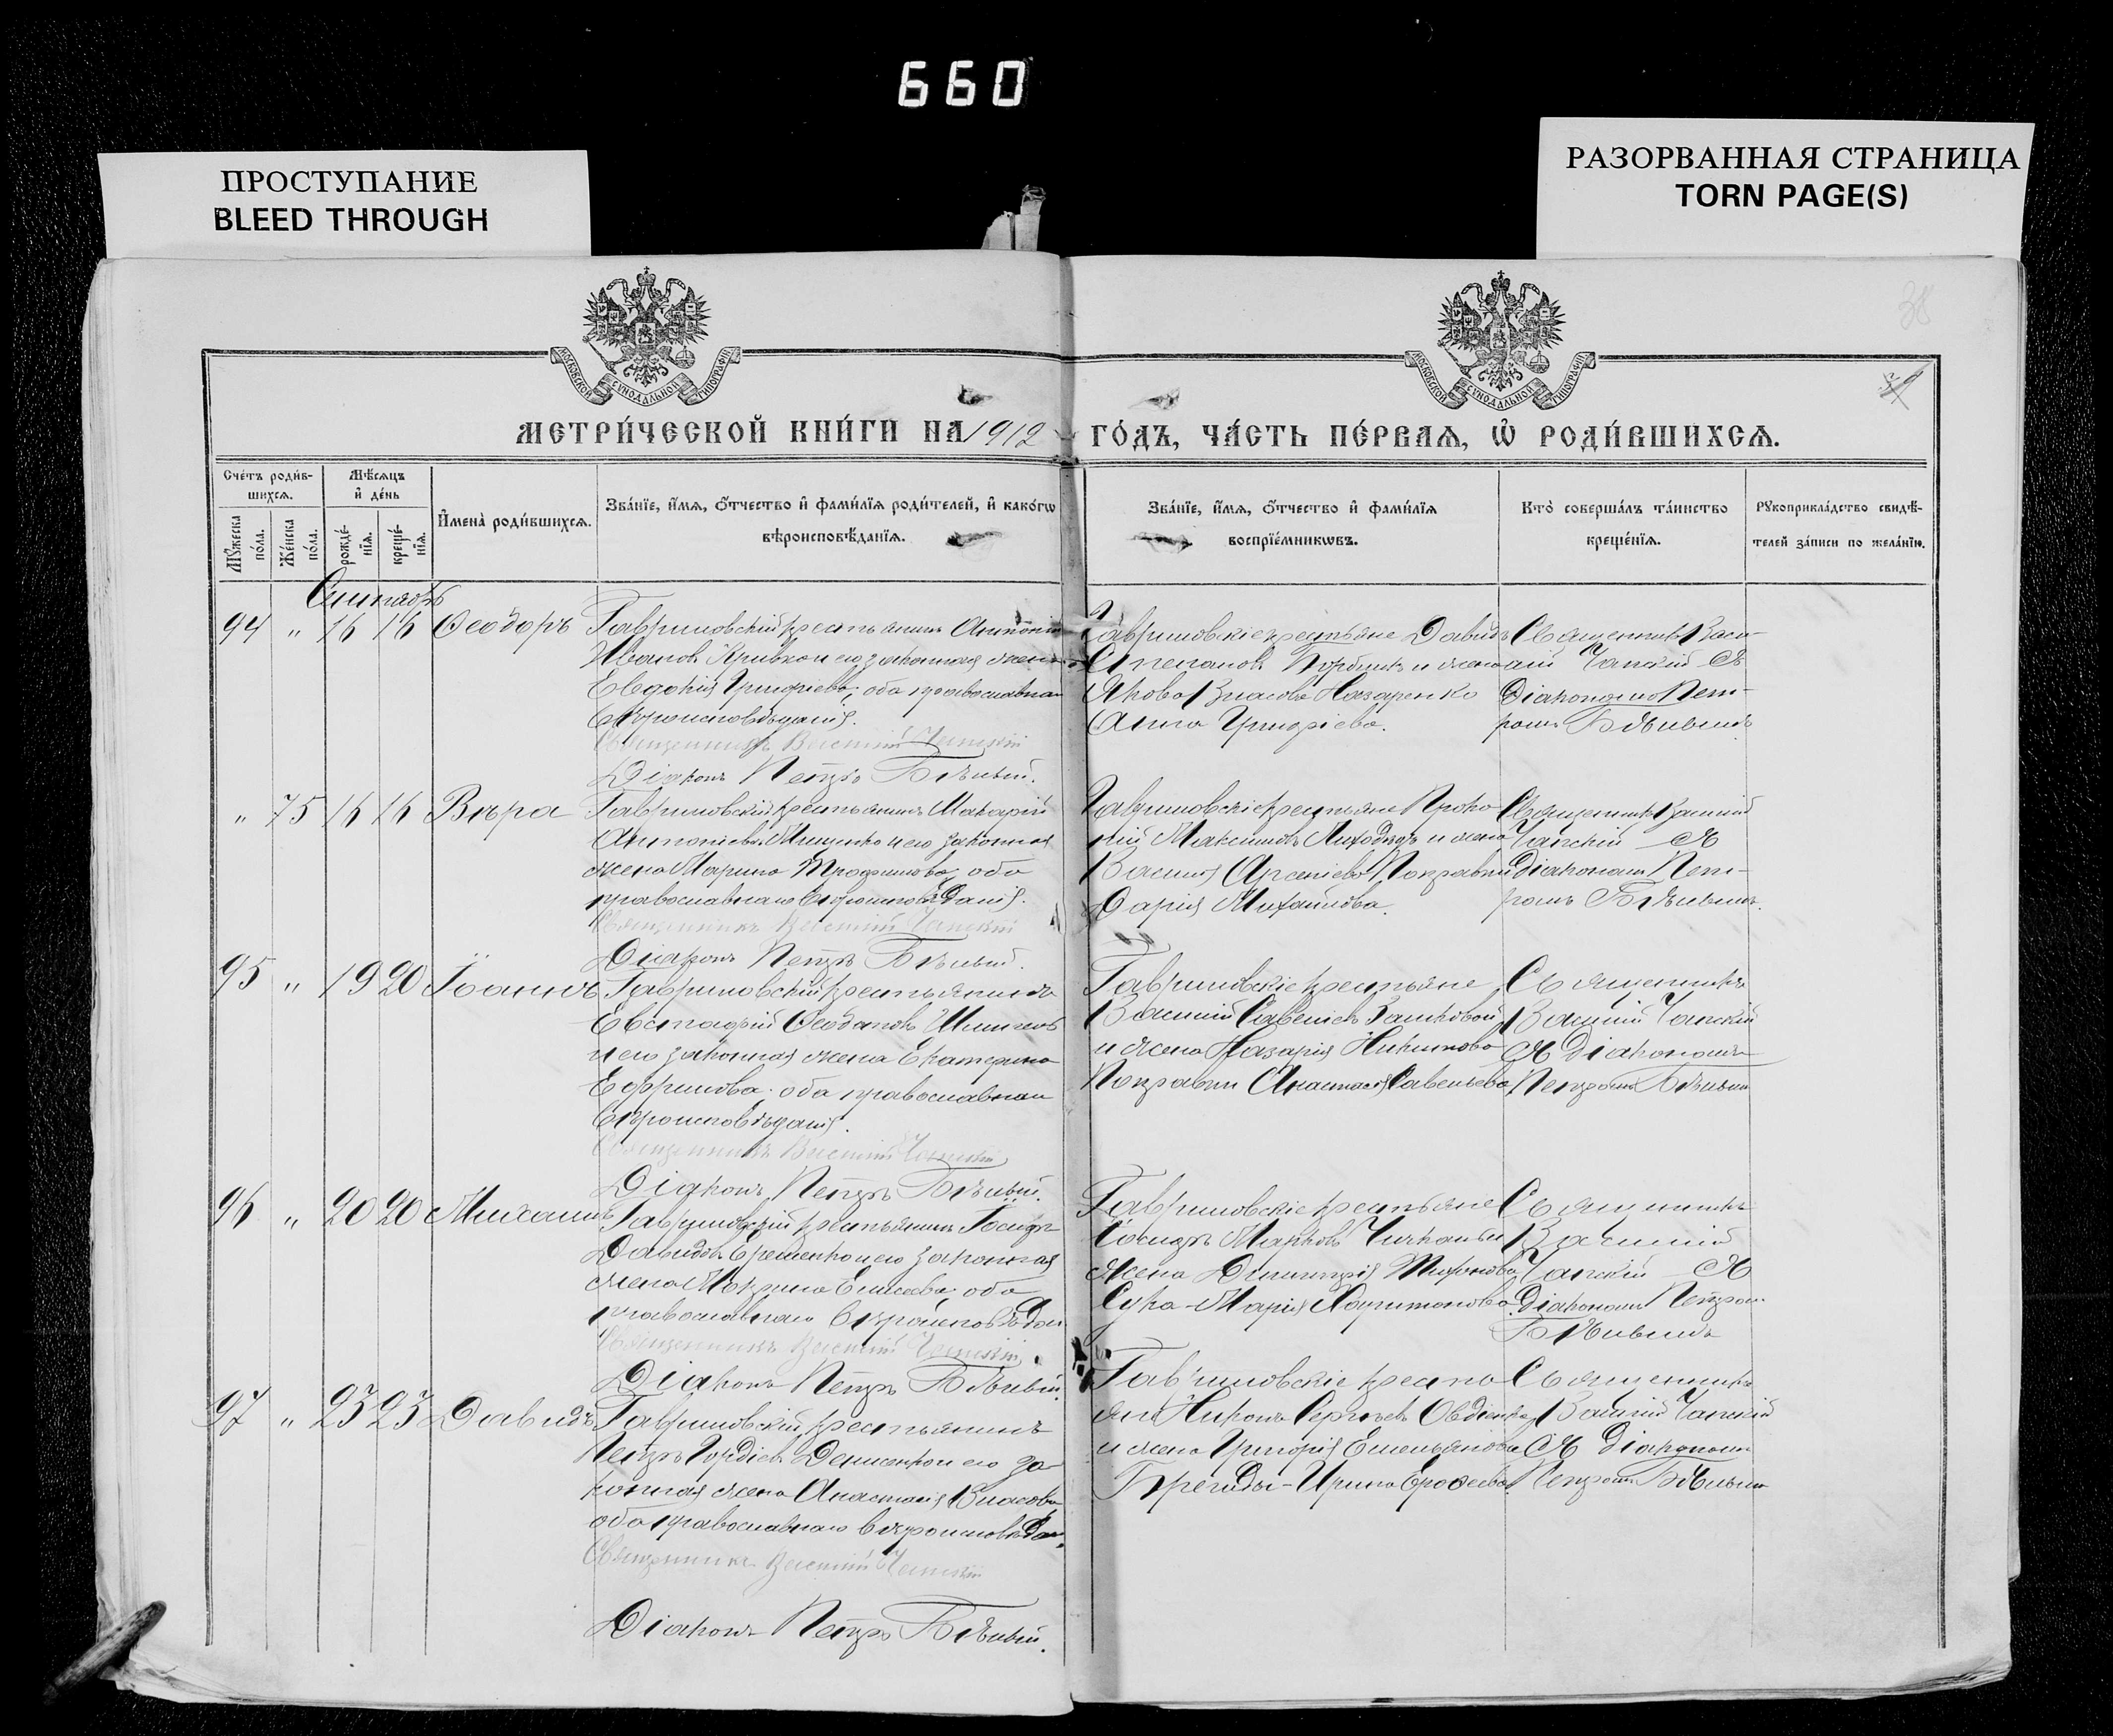 660
ПРОСТУПАНИЕ
BLEED THROUGH
РАЗОРВАННАЯ СТРАНИЦА
TORN PAGE(S)
38
МОСКОВСКОЙ СѴНОДАЛЬНОЙ ТИПОГРАФІИ
МОСКОВСКОЙ СѴНОДАЛЬНОЙ ТИПОГРАФІИ
МЕТРИ́ЧЕСКОЙ КНИ́ГИ НА 1912 ГО́ДЪ, ЧА́СТЬ ПЕ́РВАѦ, Ѡ҆ РОДИ́ВШИХСѦ.
Сче́тъ роди́в-
шихсѧ.
Мѣ́сѧцъ
и҆ де́нь
Мꙋ́жеска
по́ла.
Же́нска
по́ла.
рожде́-
нїѧ.
креще́-
нїѧ.
И҆мена̀ роди́вшихсѧ.
Зва́нїе, и҆́мѧ, ѻ҆́тчество и҆ фами́лїѧ роди́телей, и҆ како́гѡ
вѣроисповѣ́данїѧ.
Зва́нїе, и҆́мѧ, ѻ҆́тчество и҆ фами́лїѧ
воспрїе́мникѡвъ.
Кто̀ соверша́лъ та́инство
креще́нїѧ.
Рꙋкоприкла́дство свидѣ́-
телей за́писи по жела́нїю.
Сентябрь
94 " 16 16 Ѳеодоръ
Гавриловскій крестьянинъ Антоній
Ивановъ Кривко и его законная жена
Евдокія Григоріева, оба православнаго
вѣроисповѣданія.
Священникъ Василій Чапскій
Діаконъ Петръ Бѣлый.
Гавриловскіе крестьяне Давидъ
Степановъ и жена
Якова Власова Назаренко
Анна Григоріева.
Священникъ Васи-
лій Чапскій съ
Діакономъ Пет-
ромъ Бѣлымъ
" 75 16 16 Вѣра
Гавриловскій крестьянинъ Макарій
Антоніевъ Мищенко и его законная
жена Марина Трофимова, оба
православнаго вѣроисповѣданія.
Священникъ Василій Чапскій
Діаконъ Петръ Бѣлый.
Гавриловскіе крестьяне Проко-
пій Максимовъ Лиходѣдъ и жена
Василія Арсеніева
Дарія Михайлова.
Священникъ Василій
Чапскій съ
Діакономъ Пет-
ромъ Бѣлымъ.
95 " 19 20 Іоаннъ
Гавриловскій крестьянинъ
Евстафій Шишковъ
и его законная жена Екатерина
Ефримова. оба православнаго
вѣроисповѣданія.
Священникъ Василій Чапскій
Діаконъ Петръ Бѣлый.
Гавриловскіе крестьяне
Василій Савеліевъ
и жена Назарія Никитова
Анастасія Савельева
Священникъ
Василій Чапскій
съ Діакономъ
Петромъ Бѣлымъ
96 " 20 20 Михаилъ
Гавриловскій крестьянинъ Іосифъ
Давидовъ Еременко и его законная
жена Мокрина Елисеева, оба
православнаго вѣроисповѣдан.
Священникъ Василій Чапскій
Діаконъ Петръ Бѣлый.
Гавриловскіе крестьяне
Іосифъ Марковъ и
жена Димитрія Тихонова
Сука - Марія Харитонова
Священникъ
Василій
Чапскій съ
Діакономъ Петромъ
Бѣлымъ
97 " 23 23 Давидъ
Гавриловскій крестьянинъ
Петръ Гордіевъ Денисенко и его за-
конная жена Анастасія Власова
оба православнаго вѣроисповѣдан.
Священникъ Василій Чапскій
Діаконъ Петръ Бѣлый.
Гавриловскіе крестья-
не Никонъ Сергѣевъ Овдіенко
и жена Григорія Емельянова
Брегиды - Ирина Ерофеева
Священникъ
Василій Чапскій
съ Діакономъ
Петромъ Бѣлымъ